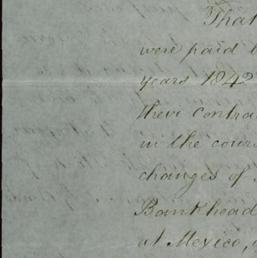 That
were paid
years 1842
their contra
in the cour
changes of
Bankhead
at Mexico,